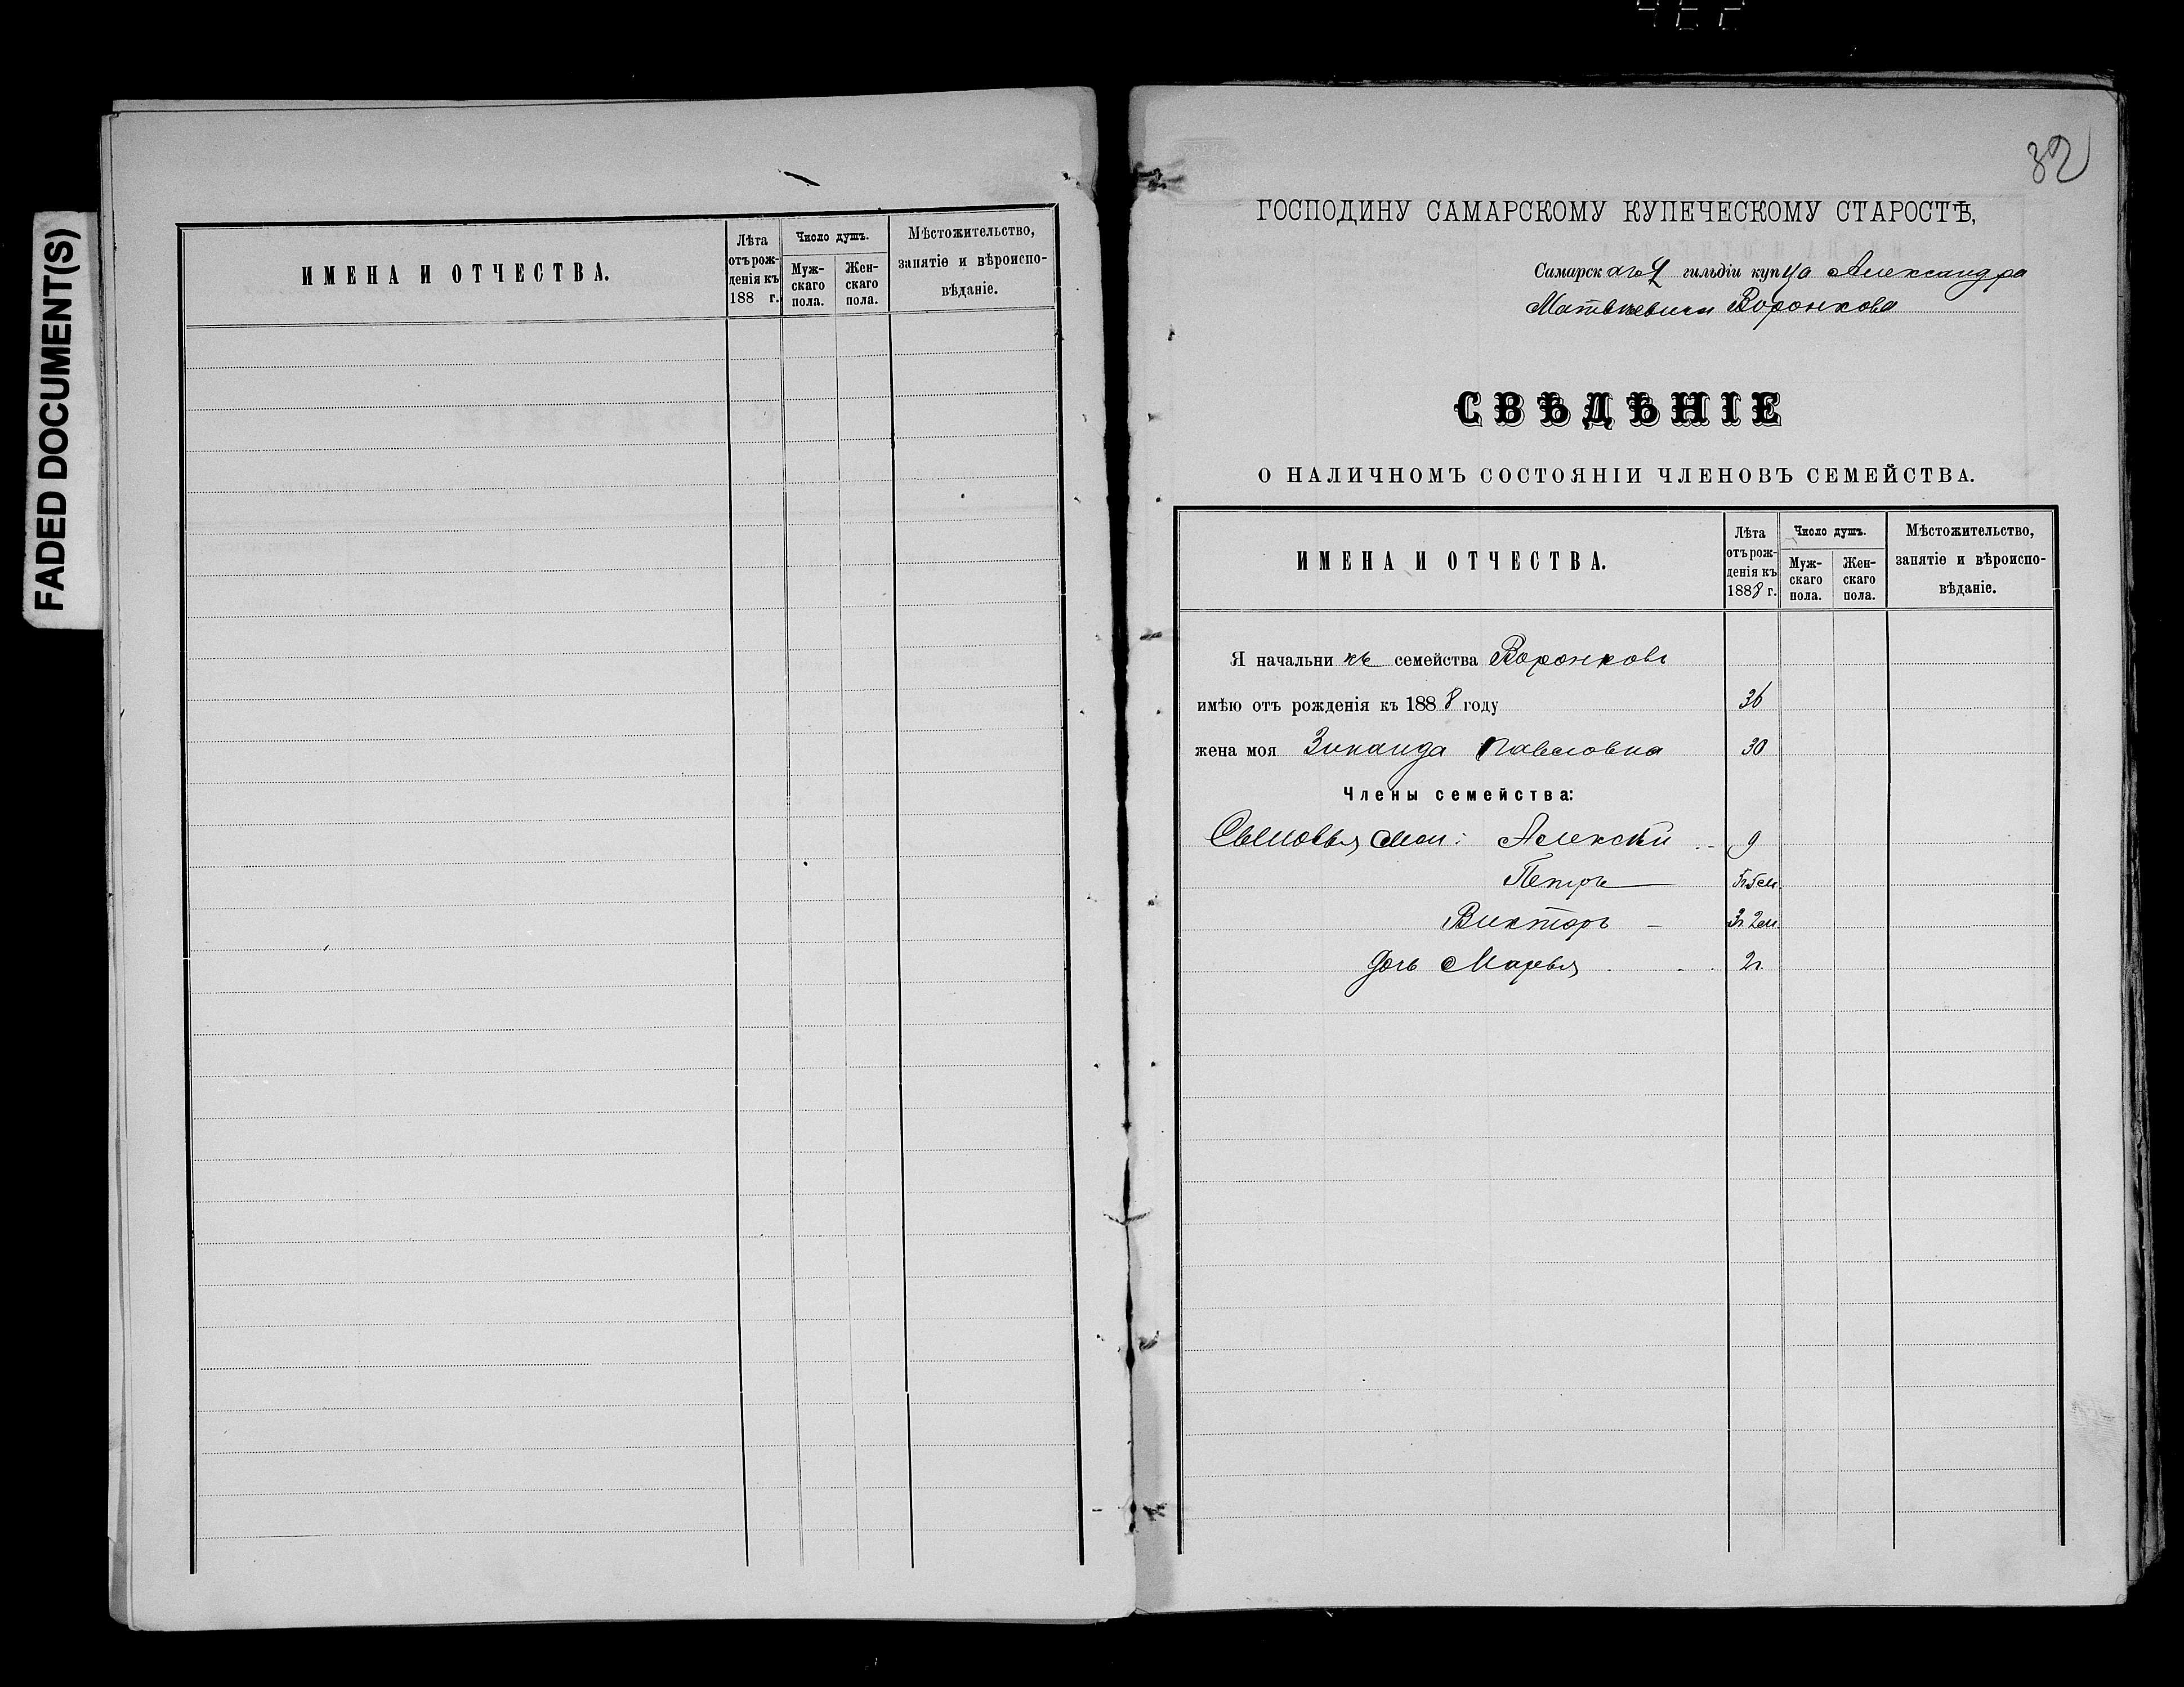 FADED DOCUMENT(S)
ИМЕНА И ОТЧЕСТВА.
Лѣта отъ рожденія къ 188 г.
Число душъ.
Мужскаго пола.
Женскаго пола.
Мѣстожительство, занятіе и вѣроисповѣданіе.
32
ГОСПОДИНУ САМАРСКОМУ КУПЕЧЕСКОМУ СТАРОСТѢ,
Самарскаго 2 гильдіи купца Александра
Матвѣевича Воронкова
СВѢДѢНІЕ
О НАЛИЧНОМЪ СОСТОЯНІИ ЧЛЕНОВЪ СЕМЕЙСТВА.
ИМЕНА И ОТЧЕСТВА.
Лѣта отъ рожденія къ 1888 г.
Число душъ.
Мужскаго пола.
Женскаго пола.
Мѣстожительство, занятіе и вѣроисповѣданіе.
Я начальникъ семейства Воронковъ
имѣю отъ рожденія къ 1888 году 36
жена моя Зинаида Павловна 30
Члены семейства:
Сыновья мои: Алексѣй 9
Петръ 5г 5м.
Викторъ - 3г 2м.
дочь Марья 2г.